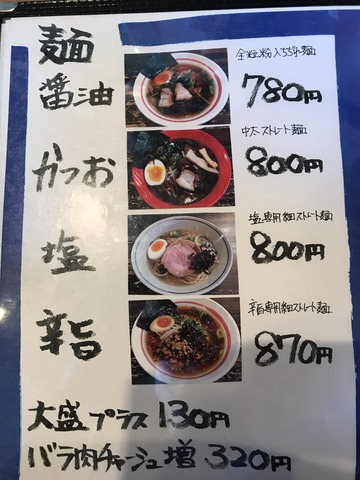 麺
醤油
全粒粉入ちぢれ麺
780円
かつお
中太ストレート麺
800円
塩
塩専用細ストレート麺
800円
辛旨
辛旨専用細ストレート麺
870円
大盛プラス130円
バラ肉チャーシュ増320円